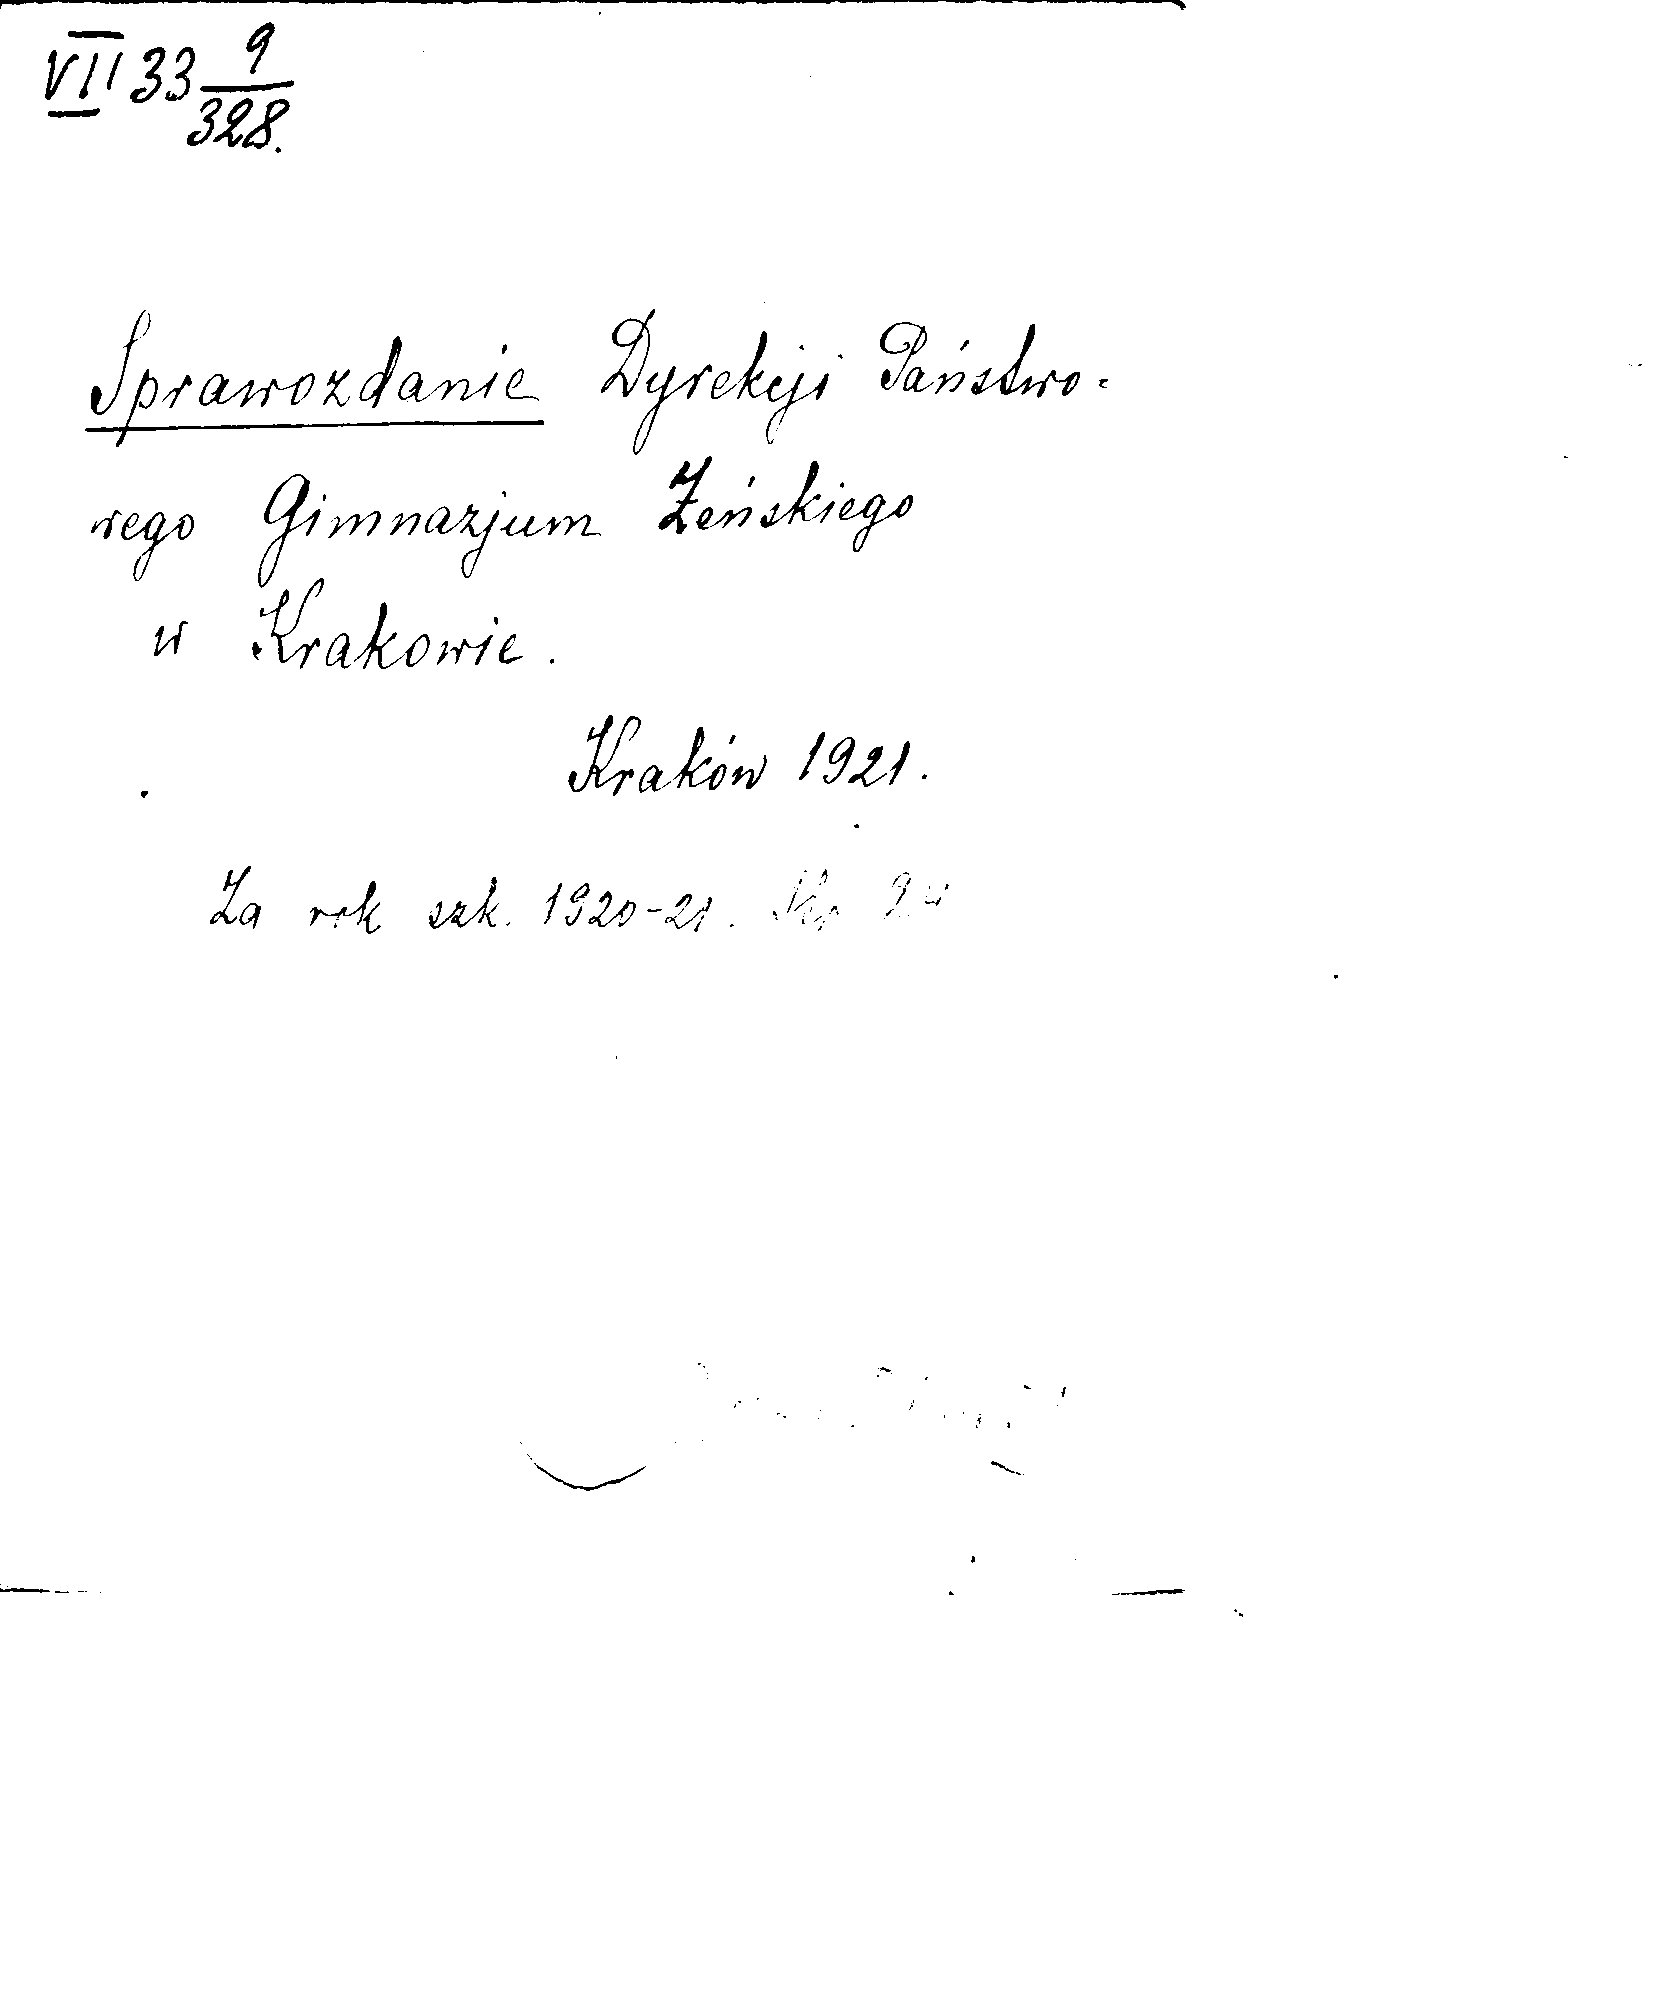 VII 33 9/328.
Sprawozdanie Dyrekcji Państwo-
wego Gimnazjum Żeńskiego
w Krakowie.
Kraków 1921.
Za rok szk. 1920-21.